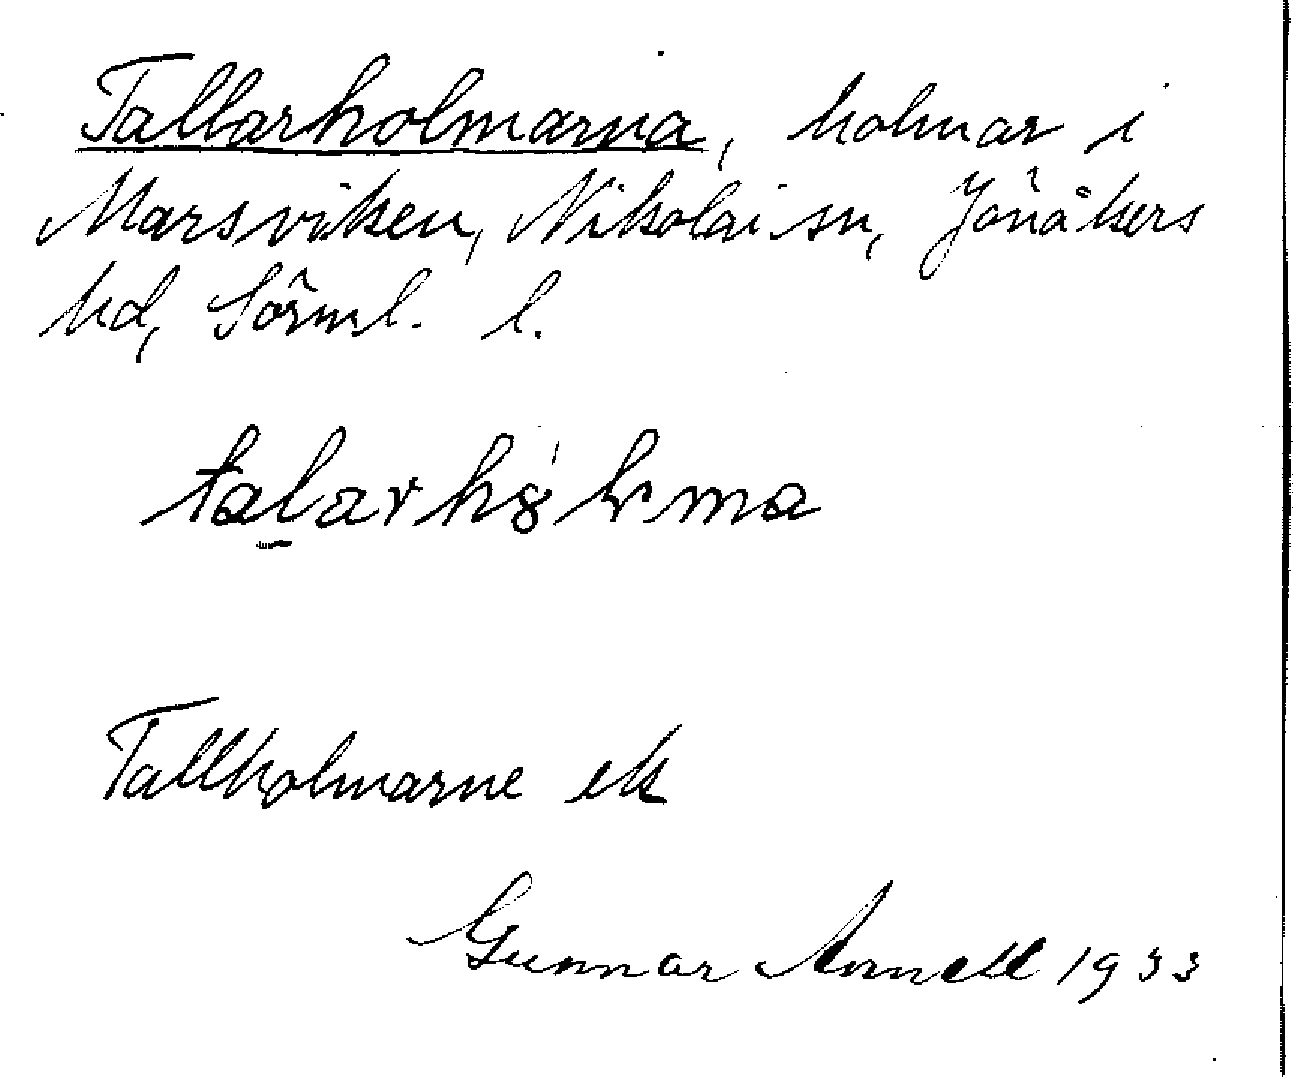 Tallarholmarna, holmar i
Marsviken, Nikolai sn, Jönåkers
hd, Sörml. l.
talarhȣlma
Tallholmarne ek
Gunnar Annell 1933